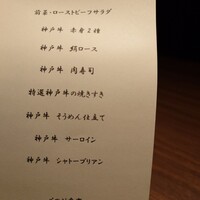 前菜・ローストビーフサラダ
神戸牛 赤身2種
神戸牛 絹ロース
神戸牛 肉寿司
特選神戸牛の焼きすき
神戸牛 そうめん仕立て
神戸牛 サーロイン
神戸牛 シャトーブリアン